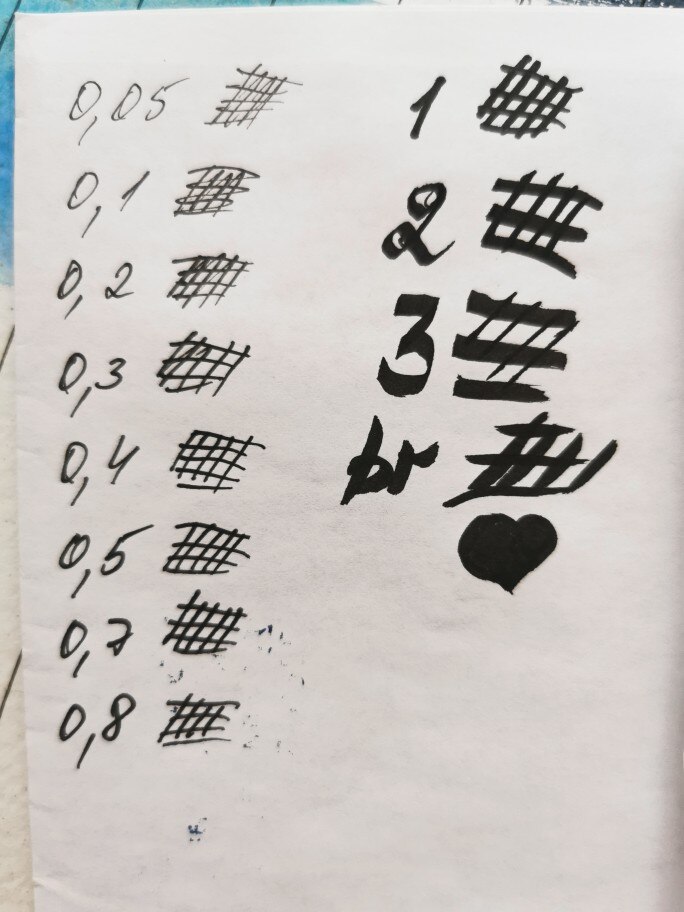 0,05
0,1
0,2
0,3
0,4
0,5
0,7
0,8
1
2
3
br